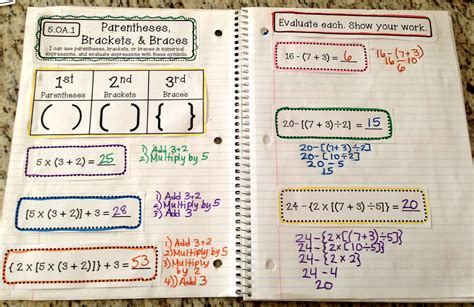 5.OA.1
Parentheses,
Brackets, & Braces
I can use parentheses, brackets, or braces in numerical
expressions, and evaluate expressions with these symbols.
1st
Parentheses
2nd
Brackets
3rd
Braces
( )
[ ]
{ }
5 x (3 + 2) = 25
1) Add 3+2
2) Multiply by 5
[5 x (3 + 2)] + 3 = 28
1) Add 3+2
2) Multiply by 5
3) Add 3
{ 2 x [5 x (3 + 2)]} + 3 = 53
1) Add 3+2
2) Multiply by 5
3) Multiply
by 2
4) Add 3
Evaluate each. Show your work.
16 - (7 + 3) = 6
16 - (7+3)
16 10
6
20-[(7 + 3) ÷ 2] = 15
20-[(7+3)÷2]
20-[10÷2]
20-5
15
24 - {2 x [(7 + 3) ÷ 5]} = 20
24-{2×[(7+3)÷5]}
24-{2×[10÷5]}
24-{2×2}
24-4
20